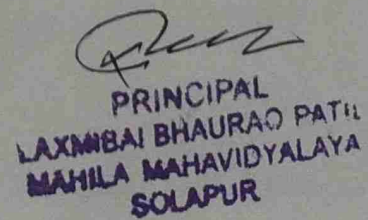 PRINCIPAL
LAXMIBAI BHAURAO PATIL
MAHILA MAHAVIDYALAYA
SOLAPUR